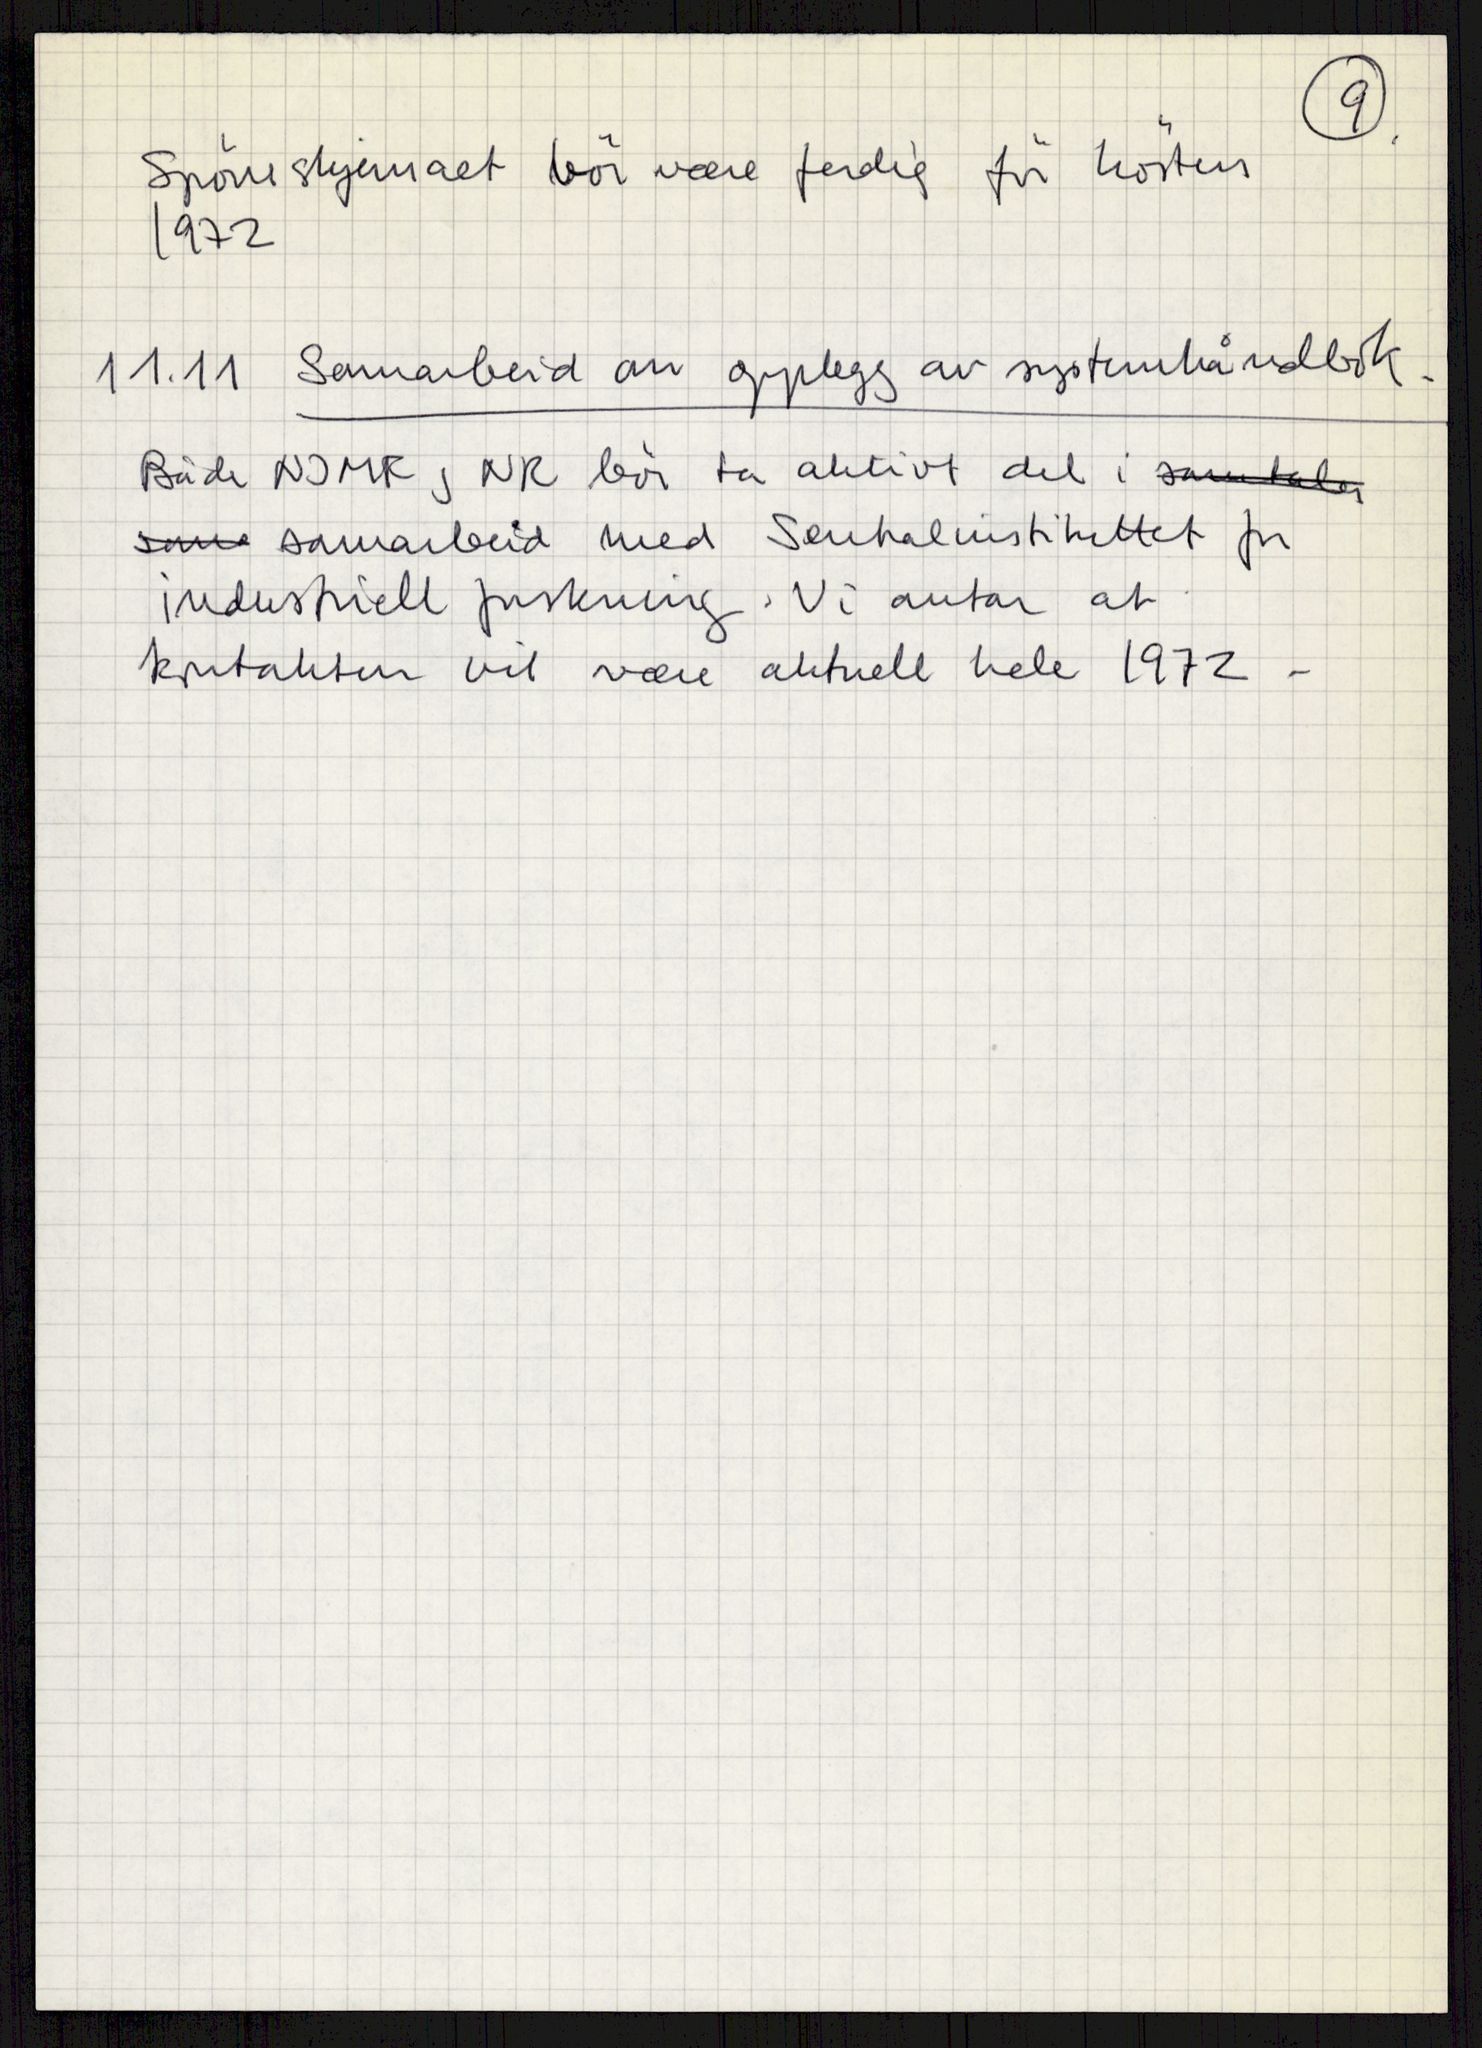 9.
Spörreskjemaet bör være ferdig för hösten
1972
11.11 Samarbeid om opplegg av systemhåndbok.
Både NJMK og NR bör ta aktivt del i samtaler
sama samarbeid med Sentralinstituttet for
industriell forskning. Vi antar at
kontakten vil være aktuell hele 1972 -